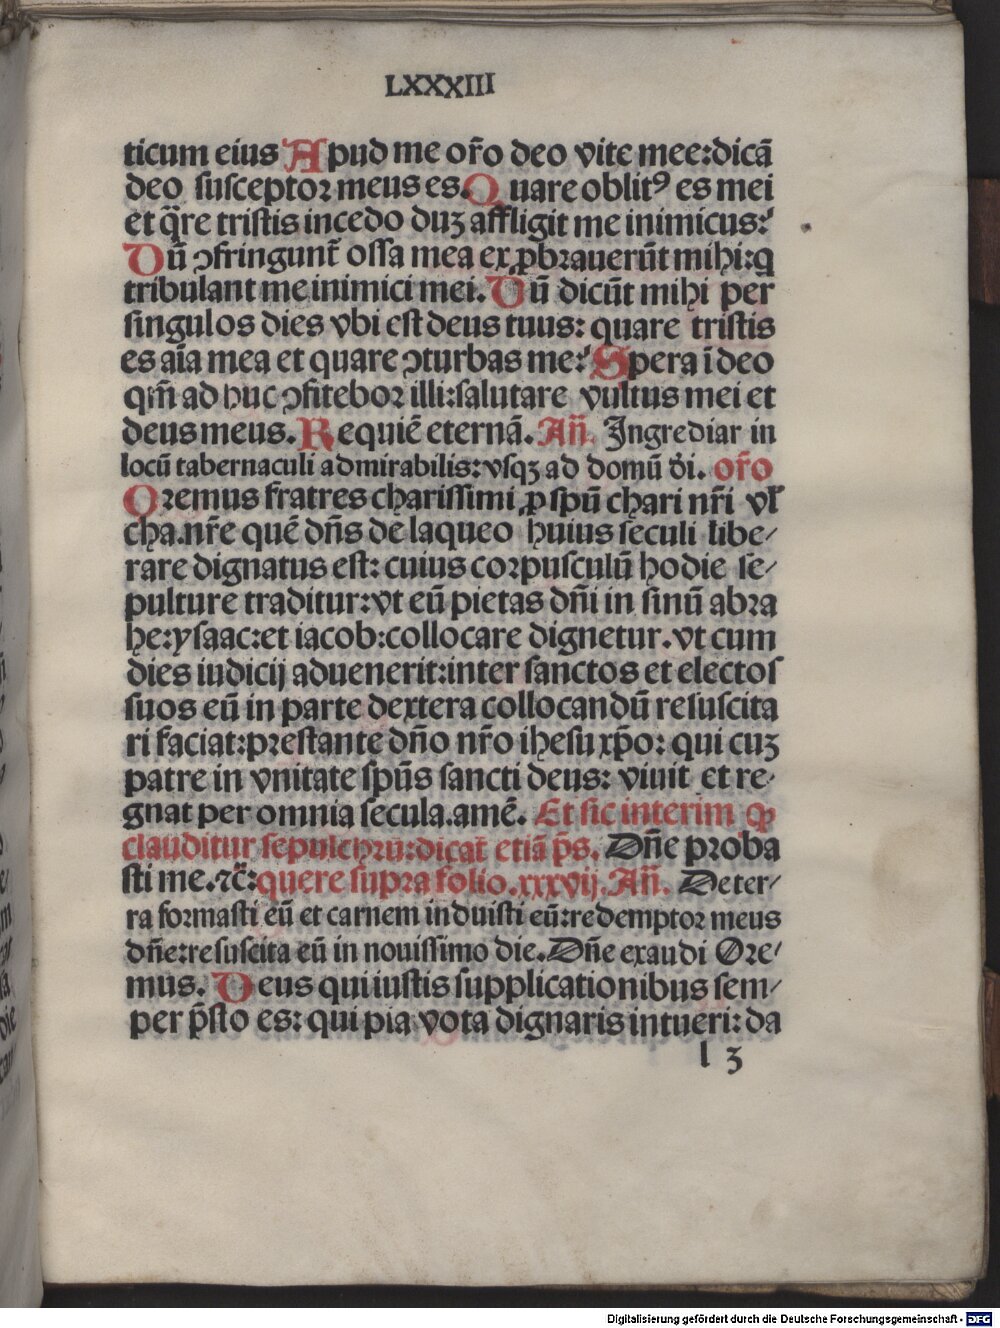 LXXXIII
ticum eius Apud me or̃o deo vite mee:dicã
deo susceptoꝛ meus es. Quare oblitꝰ es mei
et q̃re tristis incedo duʒ affligit me inimicus:
Dũ ꝯfringunt̃ ossa mea exꝓbꝛauerũt mihi:q
tribulant me inimici mei. Dũ dicũt mihi per
singulos dies vbi est deus tuus: quare tristis
es aĩa mea et quare ꝯturbas me: Spera ĩ deo
qm̃ ad huc ꝯfiteboꝛ illi:salutare vultus mei et
deus meus. Requiẽ eternã. Añ. Ingrediar in
locũ tabernaculi admirabilis:vsqꝫ ad domũ d̃i. or̃o
Oꝛemus fratres charissimi ꝓ spũ chari nr̃i vl̃
cha.nr̃e quẽ dñs de laqueo huius seculi libe/
rare dignatus est: cuius coꝛpusculũ hodie se/
pulture traditur:vt eũ pietas dñi in sinũ abꝛa
he:ysaac:et iacob:collocare dignetur.vt cum
dies iudicij aduenerit:inter sanctos et electos
suos eũ in parte dextera collocandũ resuscita
ri faciat:pꝛestante dño nr̃o ihesu xp̃o: qui cuʒ
patre in vnitate spũs sancti deus: viuit et re/
gnat per omnia secula.amẽ. Et sic interim ꝙ
clauditur sepulchꝛũ:dicat̃ etiã p̃s. Dñe pꝛoba
sti me.⁊c̃:quere supꝛa folio.xxxvij.Añ. De ter/
ra formasti eũ et carnem induisti eũ:redemptoꝛ meus
dñe:resuscita eũ in nouissimo die. Dñe exaudi Oꝛe/
mus. Deus qui iustis supplicationibus sem/
per p̃sto es: qui pia vota dignaris intueri: da
l 3
Digitalisierung gefördert durch die Deutsche Forschungsgemeinschaft - DFG